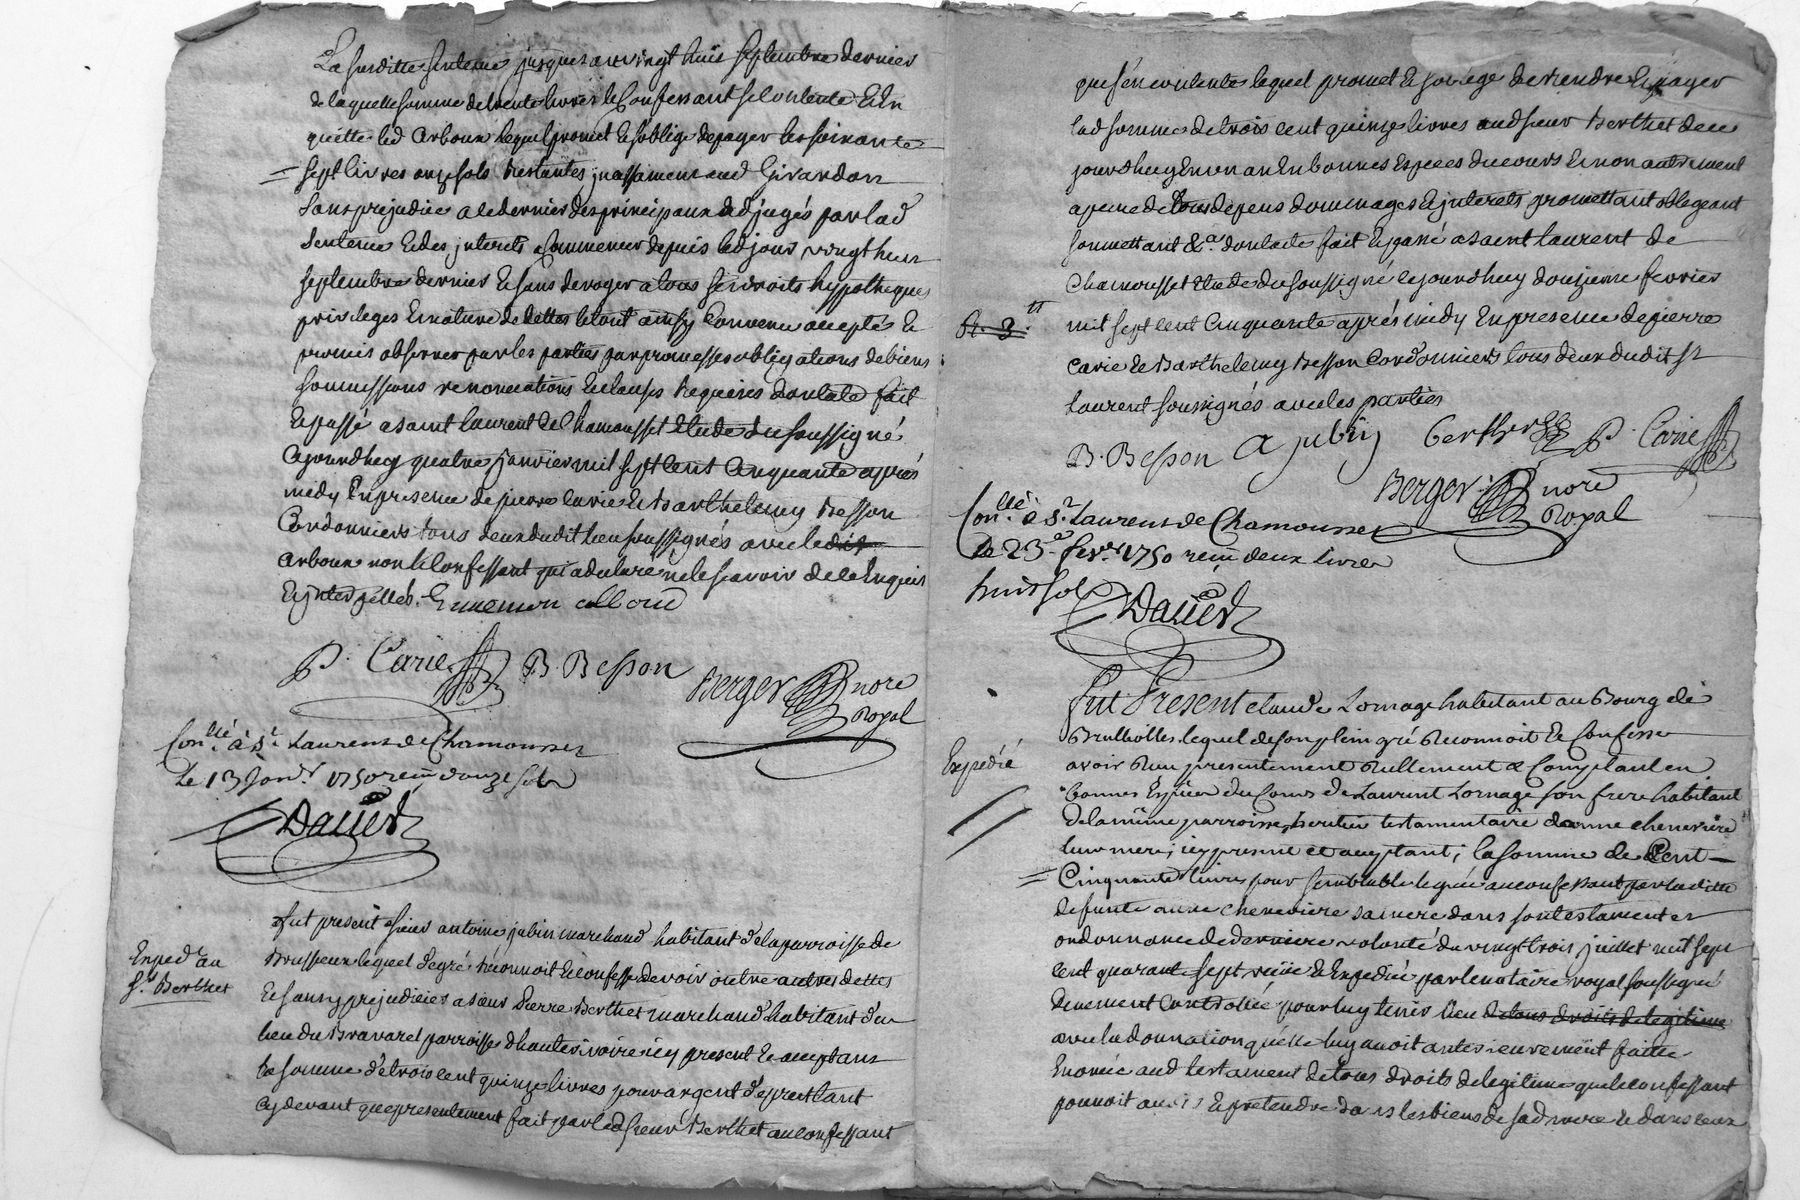 La susditte sentence jusques au vingt huit septembre dernier
de laquelle somme de trente livres le confessant se contente & en
quitte led Arboux lequel promet & soblige de payer les soixante
sept livres onze sols restantes incessament aud Girardon
sans prejudice a ce dernier des principaux adjugés par lad
sentence & des interets a commencer depuis led jour vingt huit
septembre dernier & sans deroger a tous ses droits hypotheques
privileges & nature de dettes le tout ainsy convenu accepté &
promis observer par les parties par promesses obligations de biens
soumissions renonciations & clauses requises dont acte fait
& passé a saint Laurent de Chamousset etude du soussigné
cejourdhuy quatre janvier mil sept cent cinquante après
midy en presence de pierre carie & Barthelemy Besson
Cordonniers tous deux dudit lieu soussignés avec le dit
arboux non le confessant qui a declaré ne le scavoir de ce enquis
P. Carie B. Besson Berger nore
Royal
Con.llé à St. Laurens de Chamousset
Le 13 Janv.r 1750 reçu douze sols
Davier
fut present sieur antoine jubin marchand habitant de la parroisse de
Exped.é au
Sr. Berthet
Brussieux lequel de gré reconnoit & confesse devoir outre autres dettes
& sans y prejudicier a sieur Pierre Berthet marchand habitant du
lieu du Bravard parroisse dhauterivoire icy present & acceptant
la somme de trois cent quinze livres pour argent de prest tant
cy devant que presentement fait par led sieur Berthet au confessant
que sen contente lequel promet & soblige de rendre & payer
lad somme de trois cent quinze livres aud sieur Berthet de ce
jourdhuy en un an en bonnes especes du cours & non autrement
a peine de tous depens dommages & interets promettant obligeant
soumettant &a. dont acte fait & passé a saint laurent de
Chamousset etude du soussigné cejourdhuy douzieme fevrier
mil sept cent cinquante après midy en presence de pierre
carie & Barthelemy Besson Cordonniers tous deux dudit st
laurent soussignés avec les parties
B. Besson A jubin berthet P. Carie
Berger nore
Royal
Con.llé à St. Laurens de Chamousset
Le 23e fevr. 1750 reçu deux livres
huit sols
Davier
fut Present claude Lornage habitant au Bourg de
Brullioles lequel de son plein gré reconnoit & confesse
Expédié
avoir reçu presentement reellement & comptant en
bonnes especes du cours de Laurent Lornage son frere habitant
de la même parroisse, heritier testamentaire danne chenevière
leur mere, icy present et acceptant; la somme de Cent
Cinquante livres pour semblable leguée au confessant par laditte
defunte anne Chenevière sa mere dans son testament et
ordonnance de derniere volonté du vingt trois juillet mil sept
cent quarante sept, reçue & expedié par le notaire royal soussigné
deuement controllé, pour luy tenir lieu de tous droits de legitime
avec la donnation quelle luy avoit antérieurement faitte
enoncée aud testament de tous droits de legitime que le confessant
pouvoit avoir & pretendre dans les biens de sad mere & dans ceux